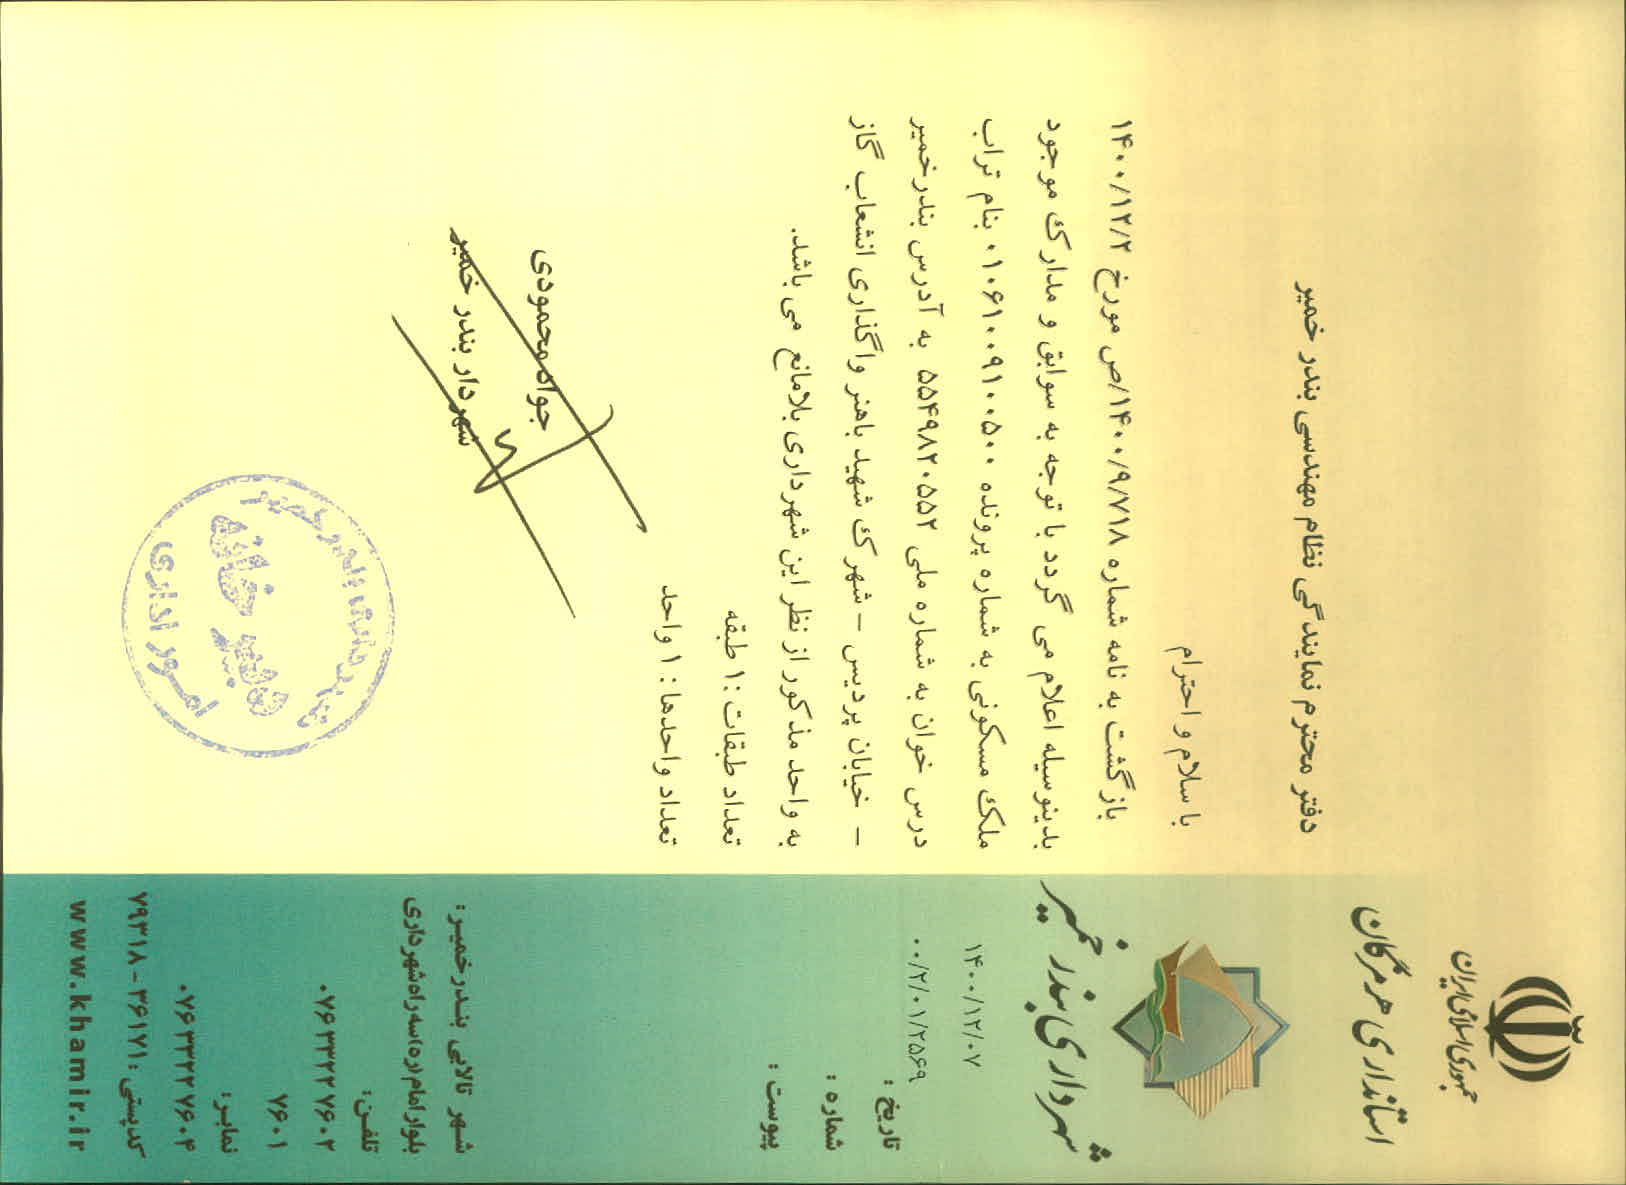 جمهوری اسلامی ایران
استانداری هرمزگان
شهرداری بندر خمیر
۱۴۰۰/۱۲/۰۷
۰۰/۲/۰۱/۲۵۶۹
تاریخ :
شماره :
پیوست :
دفتر محترم نمایندگی نظام مهندسی بندر خمیر
با سلام و احترام
بازگشت به نامه شماره ۱۴۰۰/۹/۷۱۸/ص مورخ ۱۴۰۰/۱۲/۲
بدینوسیله اعلام می گردد با توجه به سوابق و مدارک موجود
ملک مسکونی به شماره پرونده ۰۱۰۶۱۰۰۹۱۰۰۵۰۰ بنام تراب
درس خوان به شماره ملی ۵۵۴۹۸۲۰۵۵۲ به آدرس بندرخمیر
– خیابان پردیس – شهرک شهید باهنر واگذاری انشعاب گاز
به واحد مذکور از نظر این شهرداری بلامانع می باشد.
تعداد طبقات :۱ طبقه
تعداد واحدها : ۱ واحد
جواد محمودی
شهردار بندر خمیر
شهرداری بندر خمیر
دبیر خانه
امور اداری
شهر تالابی بندرخمیر:
بلوار امام (ره) سه راه شهرداری
تلفن:
۰۷۶۳۳۲۲۷۶۰۲
۷۶۰۱
نمابر:
۰۷۶۳۳۲۲۷۶۰۴
کدپستی : ۳۶۱۷۱ - ۷۹۳۱۸
www.khamir.ir